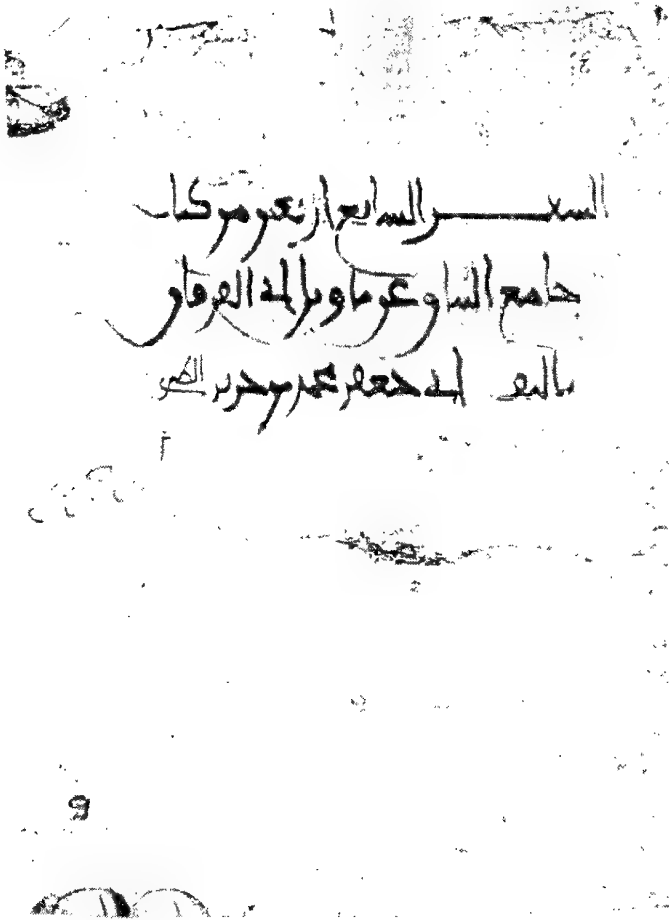 السفر السابع اربعين من كتاب
جامع البيان عن تاويل اي القرءان
تاليف ابي جعفر محمد بن جرير الطبري